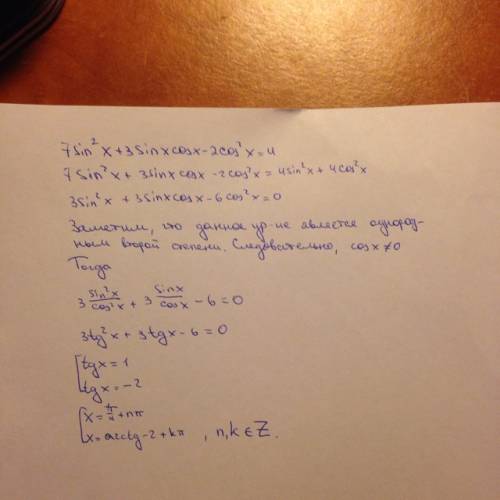 7sin²x+3sinxcosx-2cos²x=4
7sin²x+3sinxcosx-2cos²x=4sin²x+4cos²x
3sin²x+3sinxcosx-6cos²x=0
Заметим, что данное ур-не является однород-
ным второй степени. Следовательно, cosx≠0
Тогда
3 sin²x/cos²x + 3 sinx/cosx - 6=0
3tg²x+3tgx-6=0
[tgx=1
tgx=-2
[x=π/4+nπ
x=arctg-2+kπ , n,k∈Z.